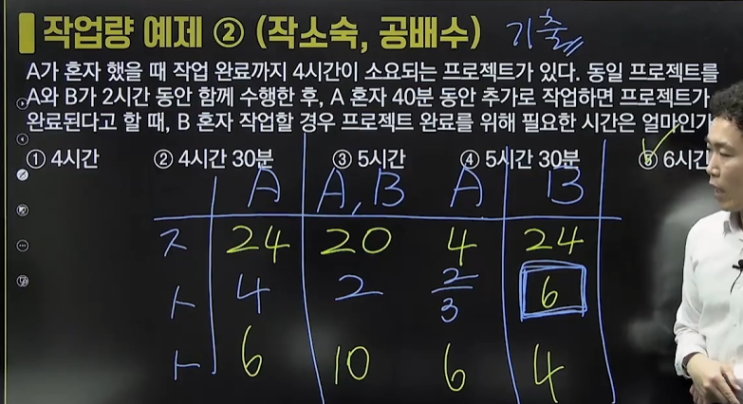 작업량 예제 ② (작소숙, 공배수) 기출
A가 혼자 했을 때 작업 완료까지 4시간이 소요되는 프로젝트가 있다. 동일 프로젝트를
A와 B가 2시간 동안 함께 수행한 후, A 혼자 40분 동안 추가로 작업하면 프로젝트가
완료된다고 할 때, B 혼자 작업할 경우 프로젝트 완료를 위해 필요한 시간은 얼마인가
① 4시간 ② 4시간 30분 ③ 5시간 ④ 5시간 30분 ⑤ 6시간
A A,B A B
ㅈ 24 20 4 24
ㅅ 4 2 2/3 6
ㅅ 6 10 6 4